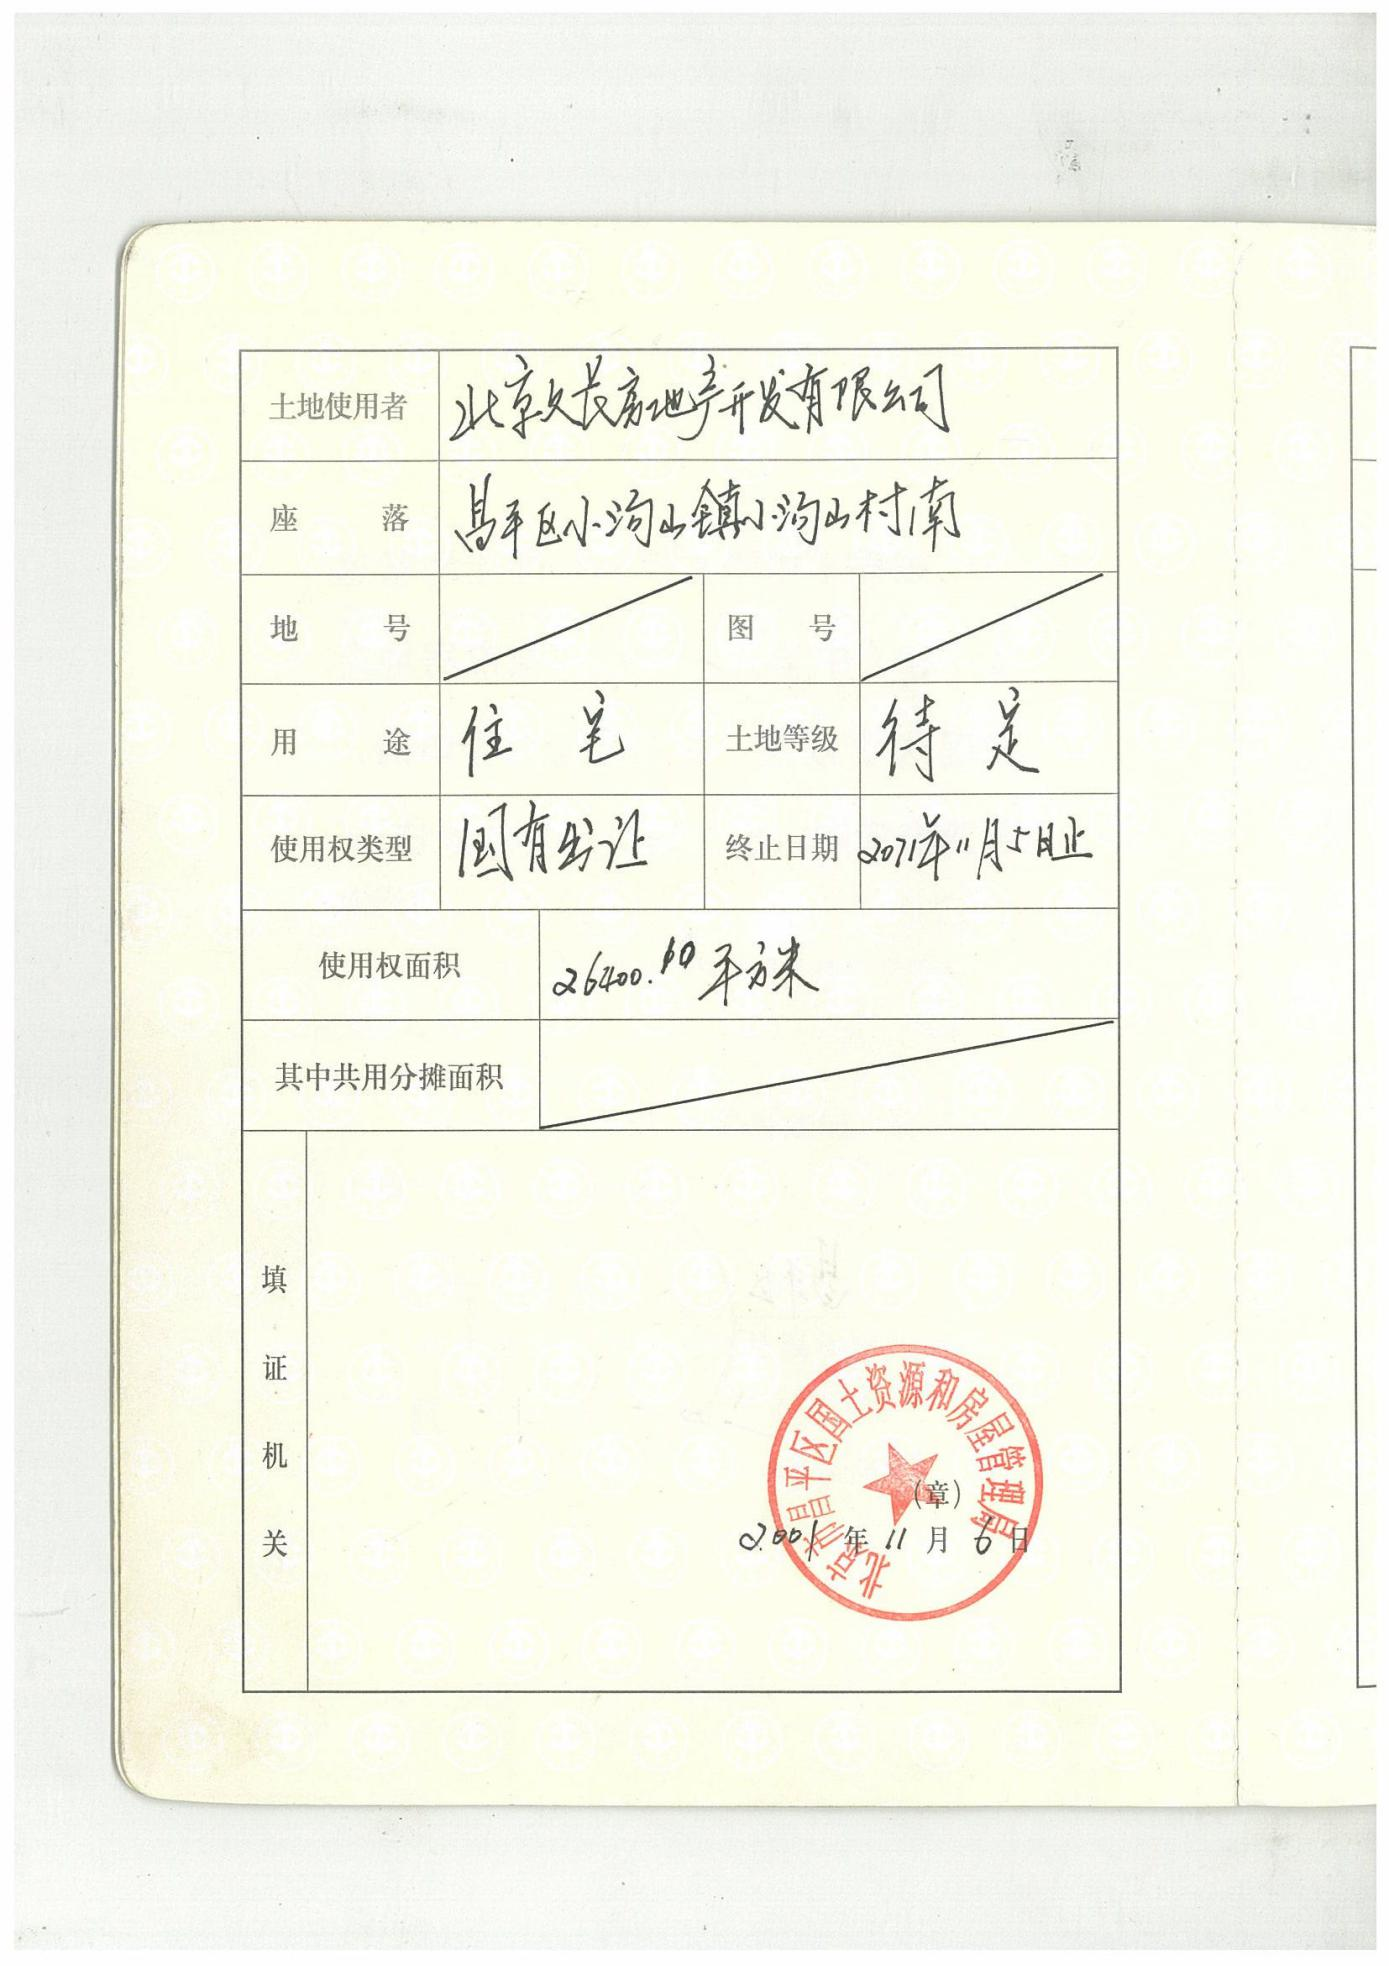 土地使用者 北京久长房地产开发有限公司
座落 昌平区小汤山镇小汤山村南
地号 图号
用途 住宅 土地等级 待定
使用权类型 国有出让 终止日期 2071年11月5日止
使用权面积 26400.60平方米
其中共用分摊面积
填证机关
北京市昌平区国土资源和房屋管理局
(章)
2001年11月6日